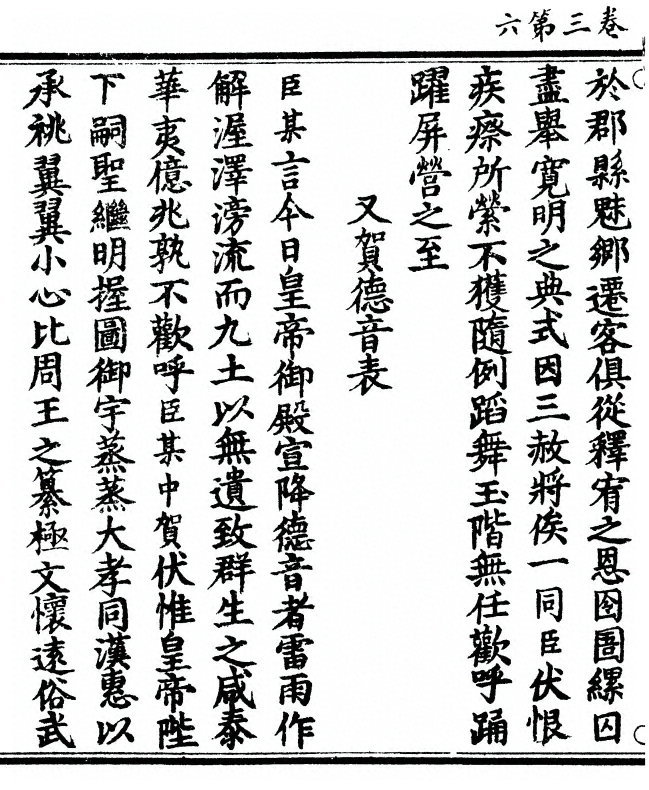 卷三第六
於郡縣魅鄉遷客俱從釋宥之恩囹圄縲囚
盡舉寬明之典式因三赦將俟一同臣伏恨
疾瘵所縈不獲隨例蹈舞玉階無任歡呼踊
躍屏營之至
又賀德音表
臣某言今日皇帝御殿宣降德音者雷雨作
解渥澤滂流而九土以無遺致群生之咸泰
華夷億兆孰不歡呼臣某中賀伏惟皇帝陛
下嗣聖繼明握圖御宇蒸蒸大孝同漢惠以
承祧翼翼小心比周王之纂極文懷遠俗武